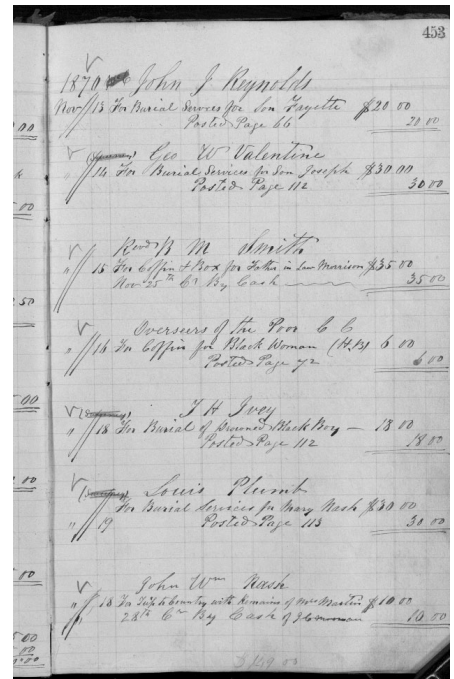 453
1870 John J Reynolds
Nov 13 For Burial Services for Son Fayette $20 00
Posted Page 66 20.00
Geo W Valentine
" 14 For Burial Services for Son Joseph $30.00
Posted Page 112 30 00
Revd R M Smith
" 15 For Coffin & Box for Father in Law Morrison $35 00
Nov 25th Cr By Cash 35 00
Overseers of the Poor C C
" 16 For Coffin for Black Woman 6 00
Posted Page 72 6 00
T H Ivey
" 18 For Burial of Drowned Black Boy — 18 00
Posted Page 112 18 00
Louis Plumb
For Burial Services for Mary Nash $30 00
" 19 Posted Page 113 30 00
John Wm Nash
" 18 For Trip to Country with Remains of Mrs Martin $10.00
28th Cr By Cash of 10 00
$149.00